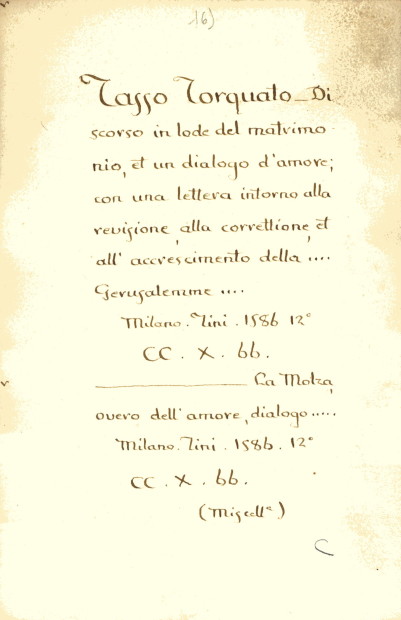 16)
Tasso Torquato _ Di
scorso in lode del matrimo
nio, et un dialogo d'amore;
con una lettera intorno alla
revisione, alla correttione, et
all' accrescimento della ....
Gerusalemme ....
Milano. Tini. 1586 12°
CC. X. 66.
La Molza,
overo dell' amore, dialogo .....
Milano. Tini. 1586. 12°
CC. X. 66.
(Miscellª)
C